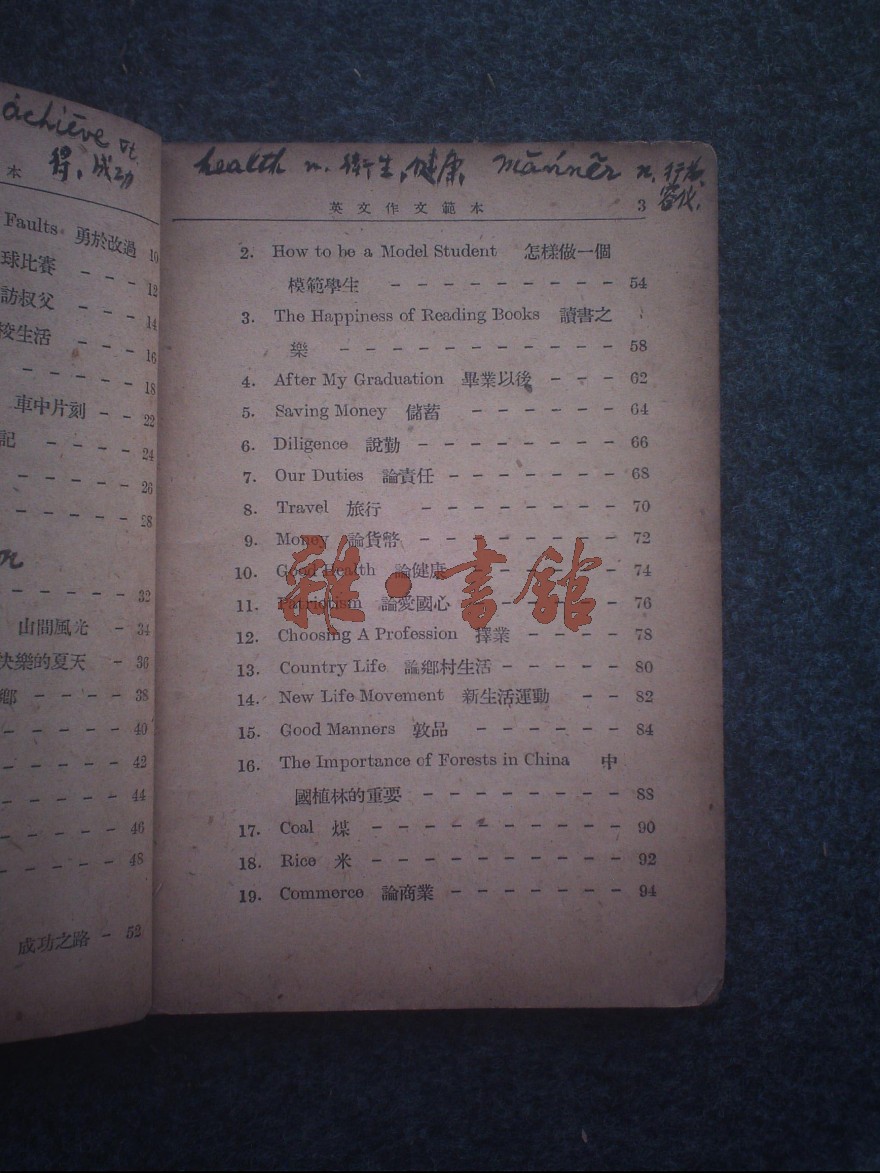 achiēve vt.
得,成功
本
Faults 勇於改過 10
球比賽 - - - 12
訪叔父 - - - - 14
校生活 - - - - 16
- - - - - 18
車中片刻 - - 22
記 - - - - 24
- - - - - 26
- - - - - 28
- - - - - 32
山間風光 - 34
快樂的夏天 - 36
鄉 - - - - 38
- - - - - 40
- - - - - 42
- - - - - 44
- - - - - 46
- - - - - 48
成功之路 - 52
health n. 衛生,健康, mānnĕr n. 行為,
英文作文範本 3
2. How to be a Model Student 怎樣做一個
模範學生 - - - - - - - - - - 54
3. The Happiness of Reading Books 讀書之
樂 - - - - - - - - - - - - 58
4. After My Graduation 畢業以後 - - - 62
5. Saving Money 儲蓄 - - - - - - 64
6. Diligence 說勤 - - - - - - - - 66
7. Our Duties 論責任 - - - - - - - 68
8. Travel 旅行 - - - - - - - 70
9. Money 論貨幣 - - - - - - - - 72
10. Good Health 論健康 - - - - - - 74
11. Patriotism 論愛國心 - - - - - - 76
12. Choosing A Profession 擇業 - - - - 78
13. Country Life 論鄉村生活 - - - - - 80
14. New Life Movement 新生活運動 - - 82
15. Good Manners 敦品 - - - - - - 84
16. The Importance of Forests in China 中
國植林的重要 - - - - - - - - 88
17. Coal 煤 - - - - - - - - - - 90
18. Rice 米 - - - - - - - - - - 92
19. Commerce 論商業 - - - - - - - 94
雜·書館